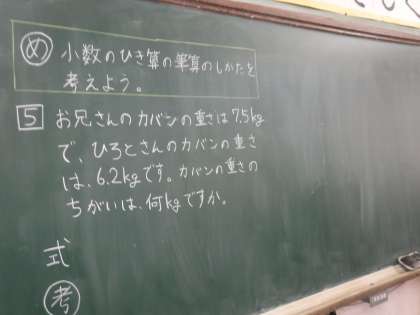 め 小数のひき算の筆算のしかたを
考えよう。
5 お兄さんのカバンの重さは7.5kg
で、ひろとさんのカバンの重さ
は、6.2kgです。カバンの重さの
ちがいは、何kgですか。
式
考